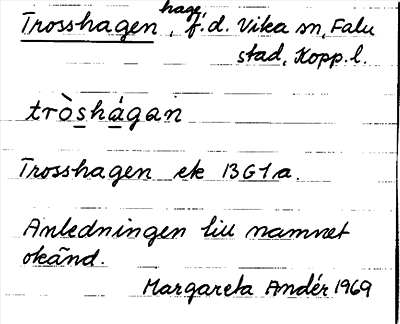 Trosshagen, hage, f.d. Vika sn, Falu
stad, Kopp.l.
tròshágan
Trosshagen ek 13G1a.
Anledningen till namnet
okänd.
Margareta Andér 1969